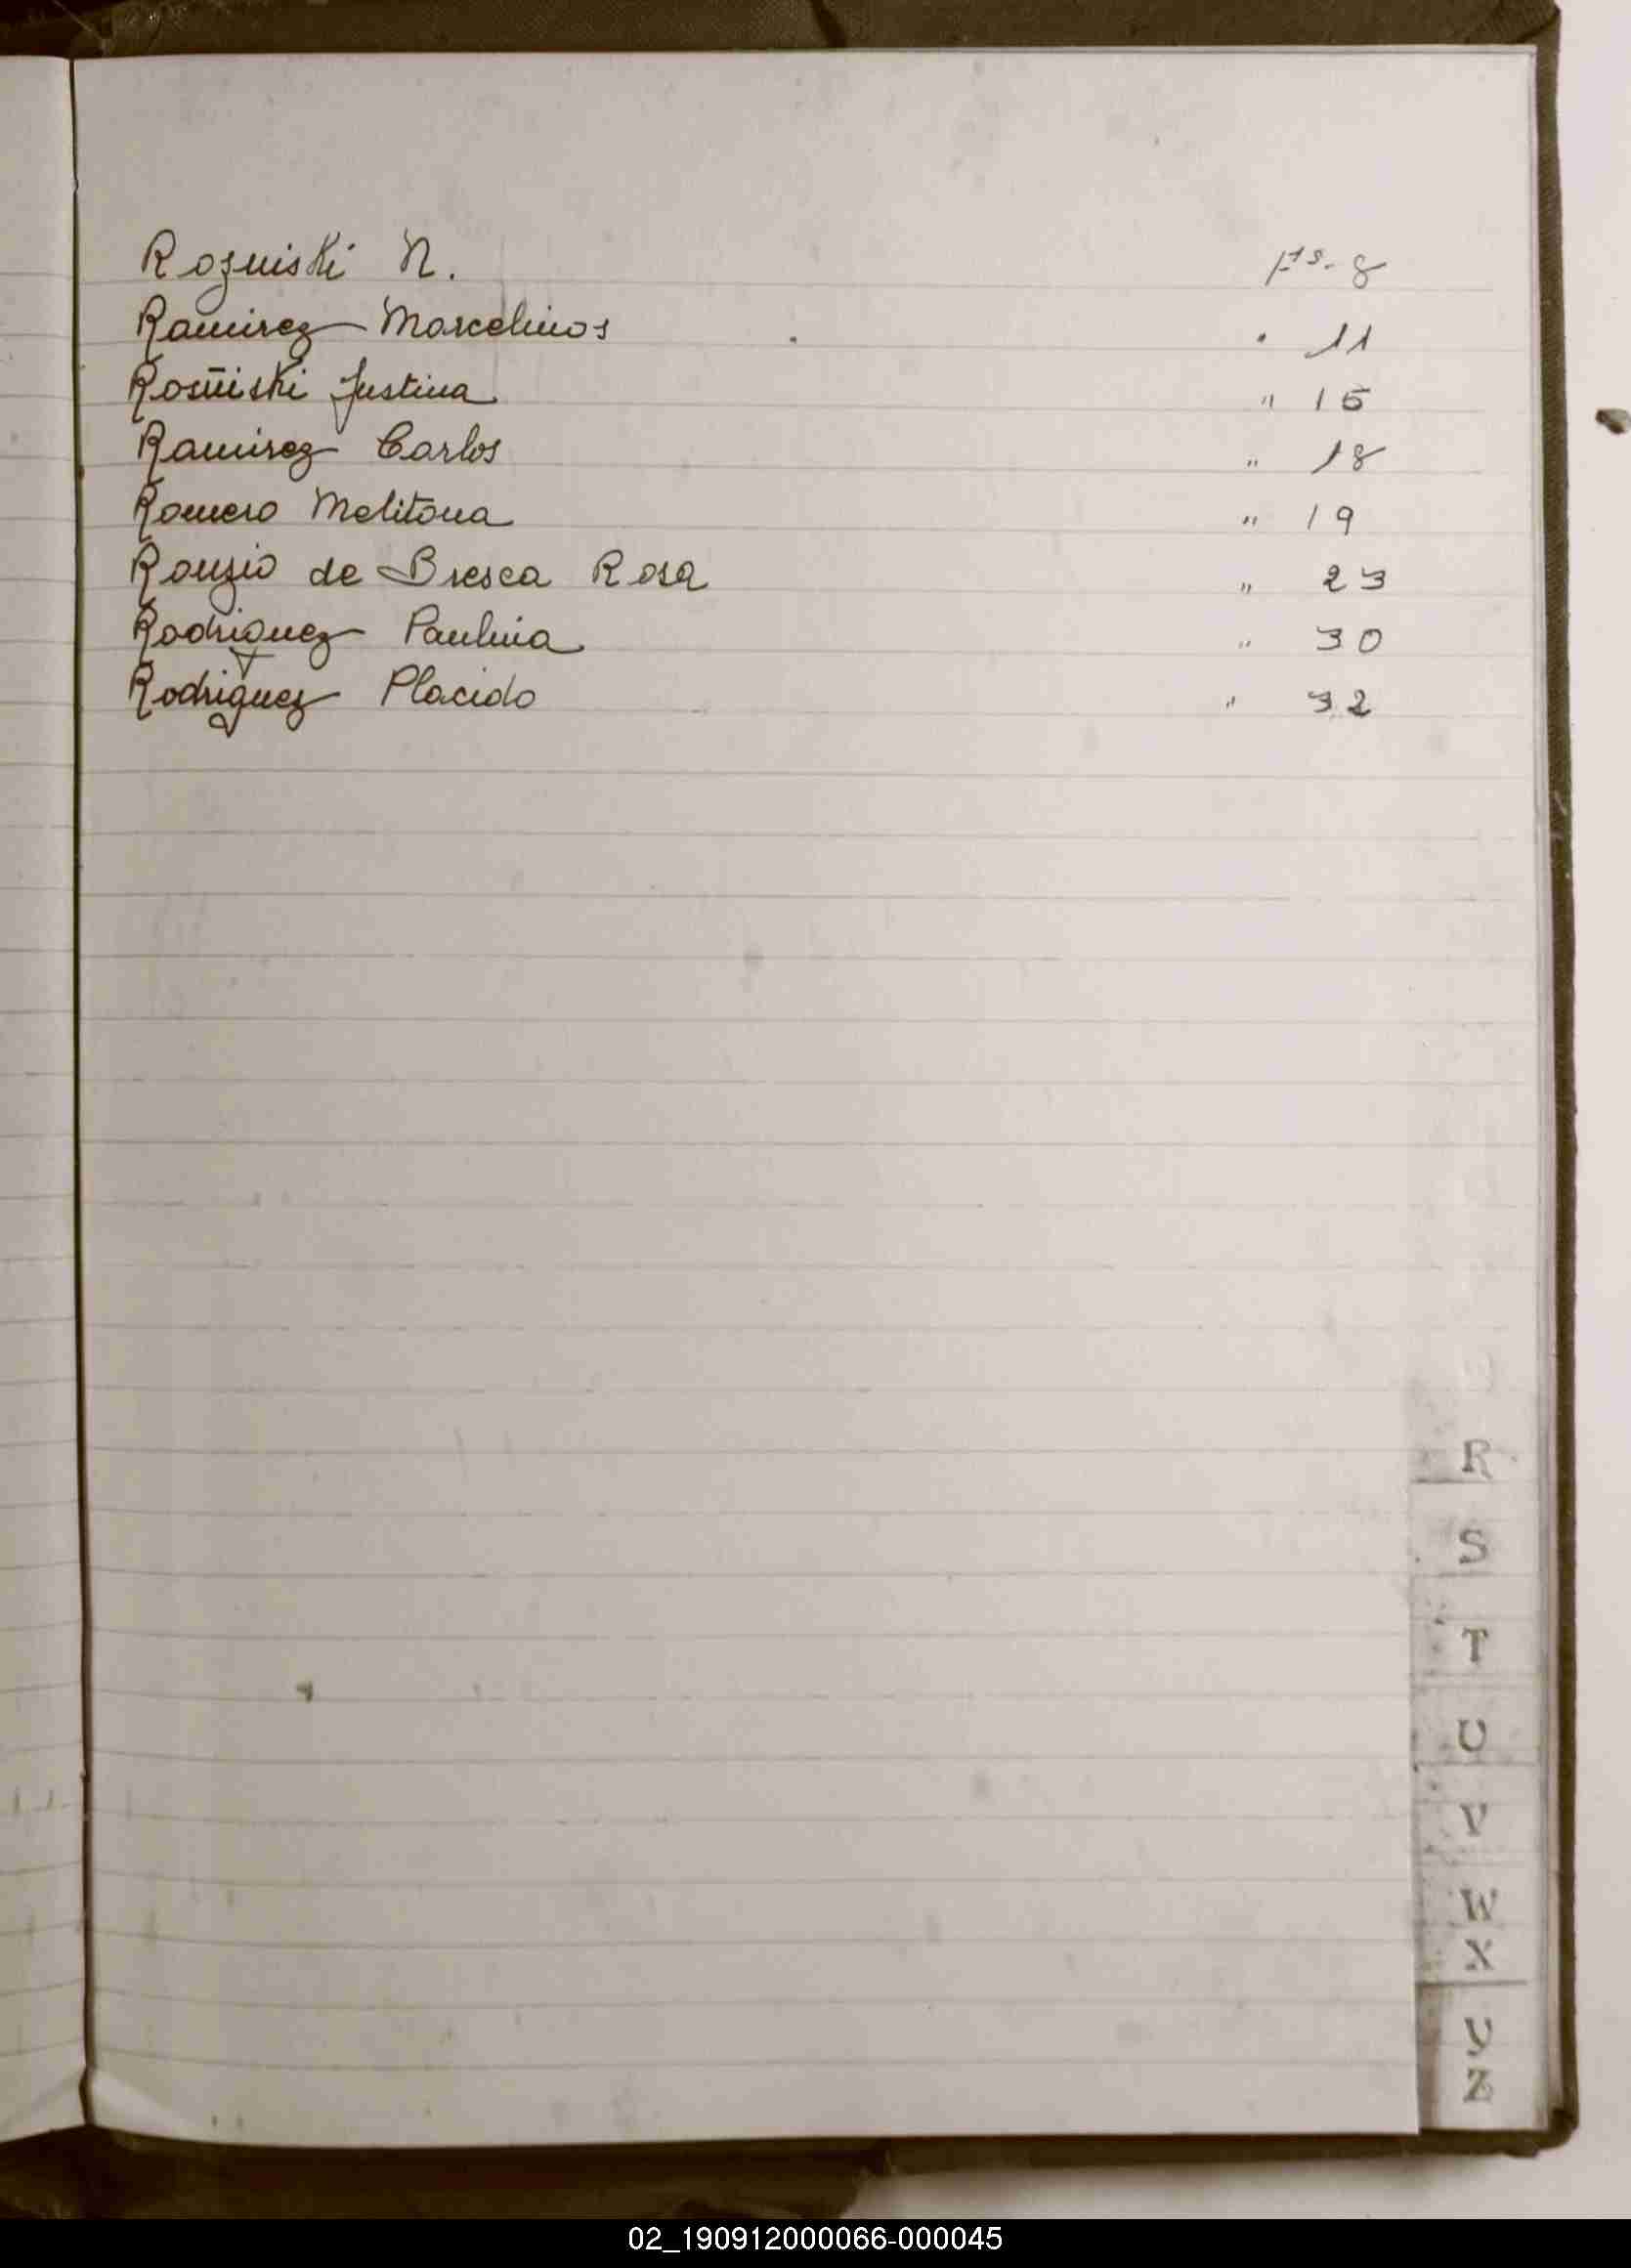 Rozniski N. Fs. 8
Ramirez Marcelinos " 11
Rosñiski Justina " 15
Ramirez Carlos " 18
Romero Melitona " 19
Ronzio de Bresca Rosa " 23
Rodriguez Paulina " 30
Rodriguez Placido " 32
R
S
T
U
V
W
X
Y
Z
02_190912000066-000045